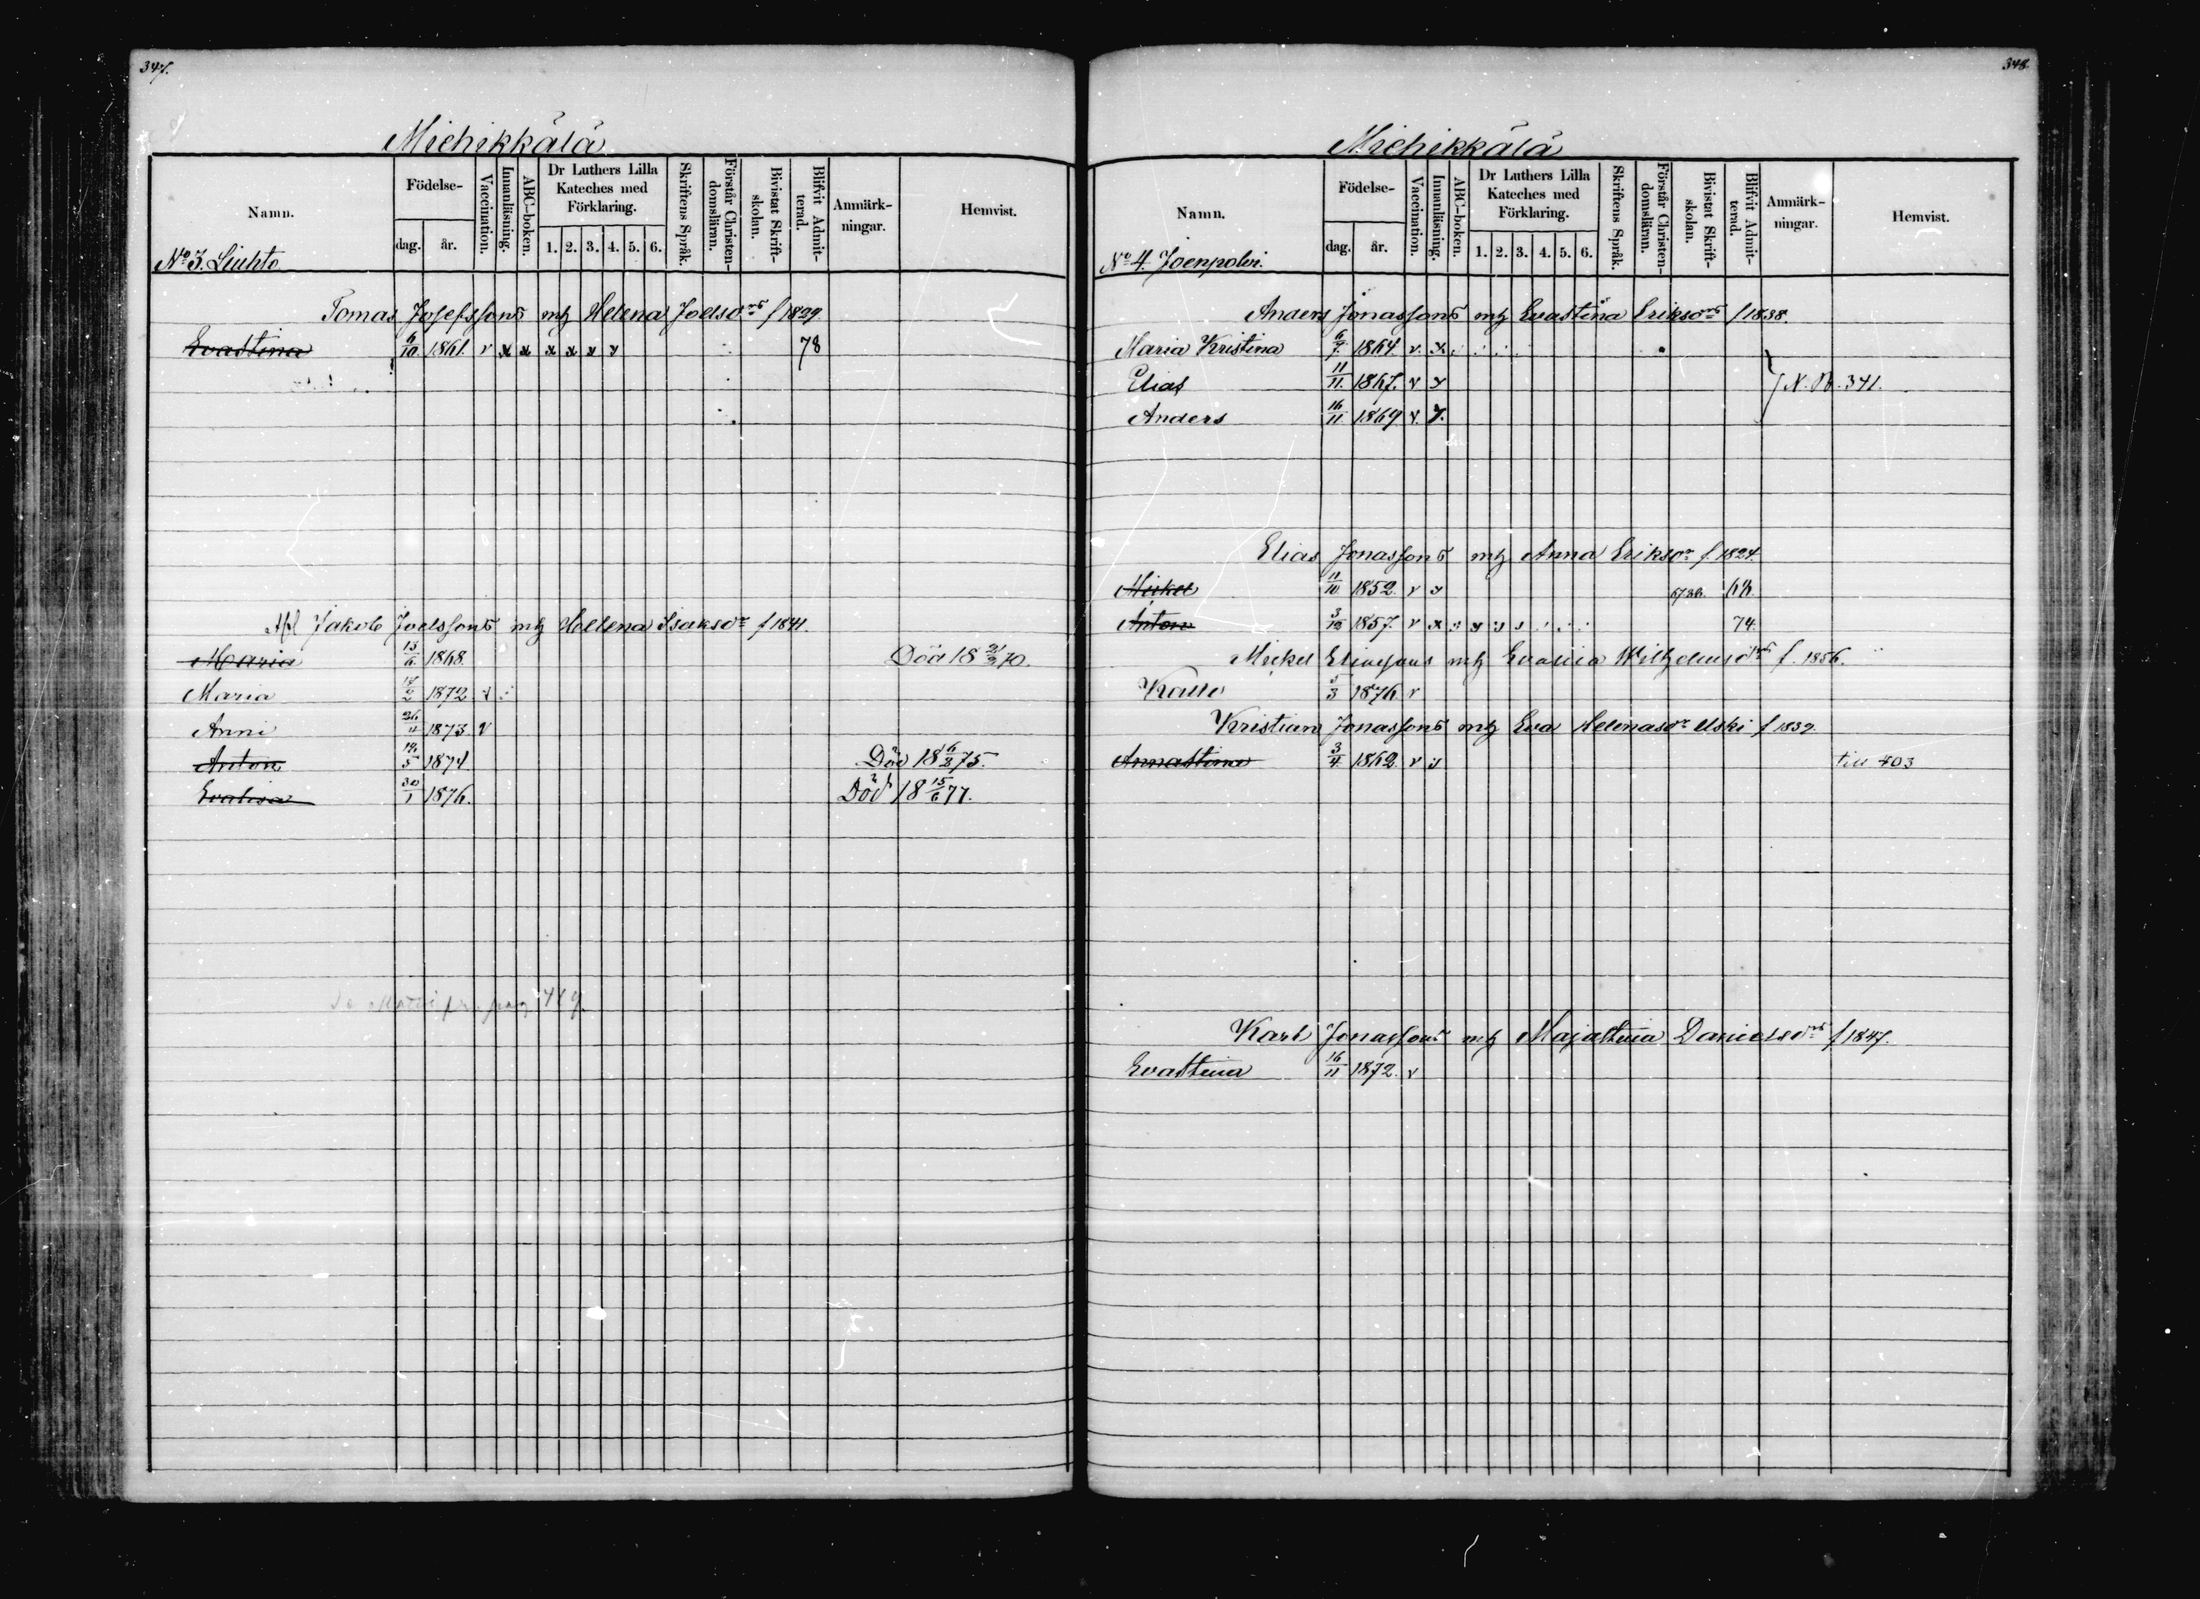 347.
Michikkälä
Namn.
Födelse-
dag.
år.
Vaccination.
Innanläsning.
ABC-boken.
Dr Luthers Lilla Kateches med Förklaring.
1. 2. 3. 4. 5. 6.
Skriftens Språk.
Förstår Christen-domsläran.
Bivistat Skrift-skolan.
Blifvit Admit-terad.
Anmärk-ningar.
Hemvist.
No 3. Liuhto
Tomas Josefssons m h Helena Joelsdrs f 1829
Evastina 6/10 1861. v x x x x x x 78
Jakob Joelssons m h Helena Isaksdr f 1841.
Maria 15/6 1868. Död 18 21/2 70.
Maria 17/2 1872 v
Anni 26/11 1873 v
Anton 19/5 1874 Död 18 6/2 75.
Evalisa 30/1 1876. Död 18 15/6 77.
348
Michikkälä
Namn.
Födelse-
dag.
år.
Vaccination.
Innanläsning.
ABC-boken.
Dr Luthers Lilla Kateches med Förklaring.
1. 2. 3. 4. 5. 6.
Skriftens Språk.
Förstår Christen-domsläran.
Bivistat Skrift-skolan.
Blifvit Admit-terad.
Anmärk-ningar.
Hemvist.
No 4. Joenpolvi.
Anders Jonassons m h Evastina Eriksdrs f 1838.
Maria Kristina 6/7 1864. v. x
Elias 11/11 1867. v x N. B. 341.
Anders 16/11 1869 v. x.
Elias Jonassons m h Anna Eriksdr f 1824.
Mickel 11/10 1852. v x
Anton 3/12 1857. v x 74.
Mickel Eliassons m h Wilhelmsdrs f. 1856.
5/3 1876 v
Kristian Jonassons m h Eva Helenasdr Uski f 1839.
Annastina 3/4 1862 v x till 403
Karl Jonassons m h Majastina Danielsdrs f 1847.
Evastina 16/11 1872. v